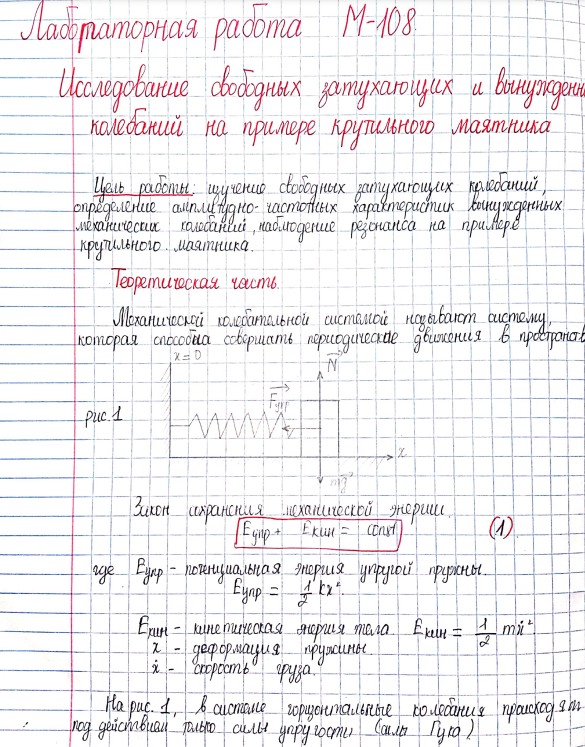 Лабораторная работа М-108.
Исследование свободных затухающих и вынужденн
колебаний на примере крутильного маятника
Цель работы: изучение свободных затухающих колебаний,
определение амплитудно-частотных характеристик вынужденных
механических колебаний, наблюдение резонанса на примере
крутильного маятника.
Теоретическая часть
Механической колебательной системой называют систему,
которая способна совершать периодические движения в пространств
x=0
N
Fупр
рис.1
x
mg
Закон сохранения механической энергии.
Eупр + Eкин = const (1)
где Eупр - потенциальная энергия упругой пружины.
Eупр = 1/2 kx².
Eкин - кинетическая энергия тела. Eкин = 1/2 mẋ².
x - деформация пружины
ẋ - скорость груза.
На рис. 1, в системе горизонтальные колебания происходят
под действием только силы упругости (силы Гука)